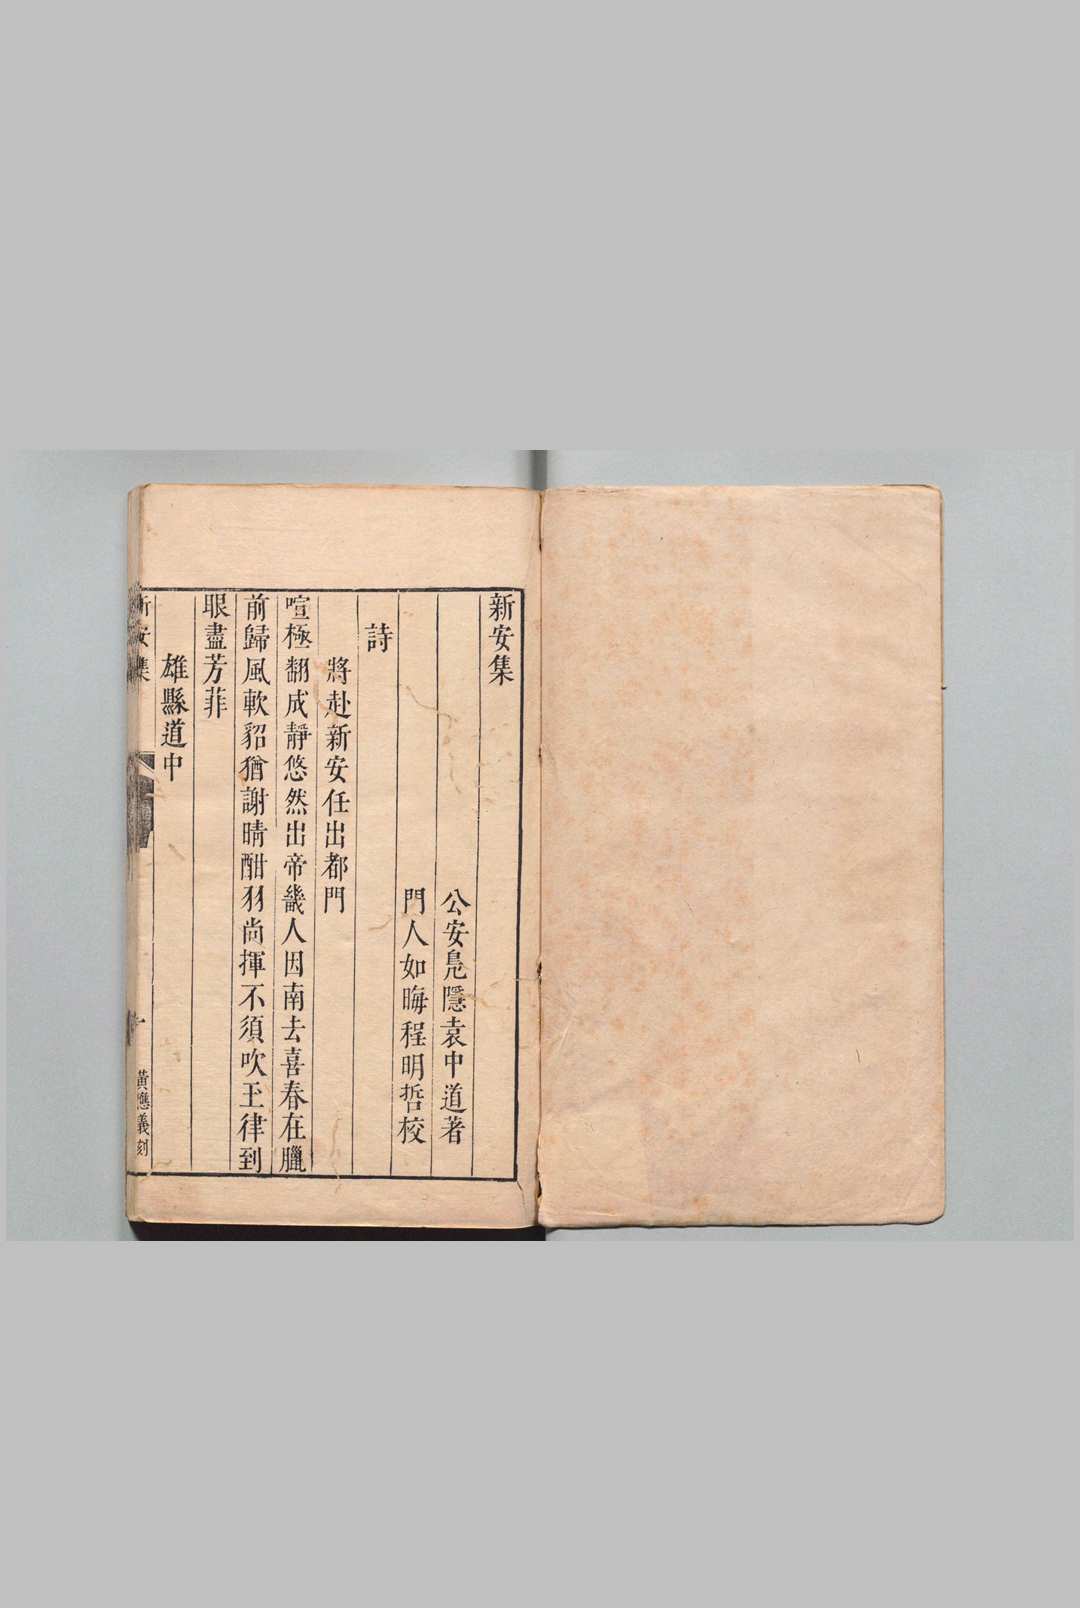 新安集
公安鳧隱袁中道著
門人如晦程明哲校
詩
將赴新安任出都門
喧極翻成靜悠然出帝畿人因南去喜春在臘
前歸風軟貂猶謝晴酣羽尚揮不須吹玉律到
眼盡芳菲
雄縣道中
新安集
黃應義刻